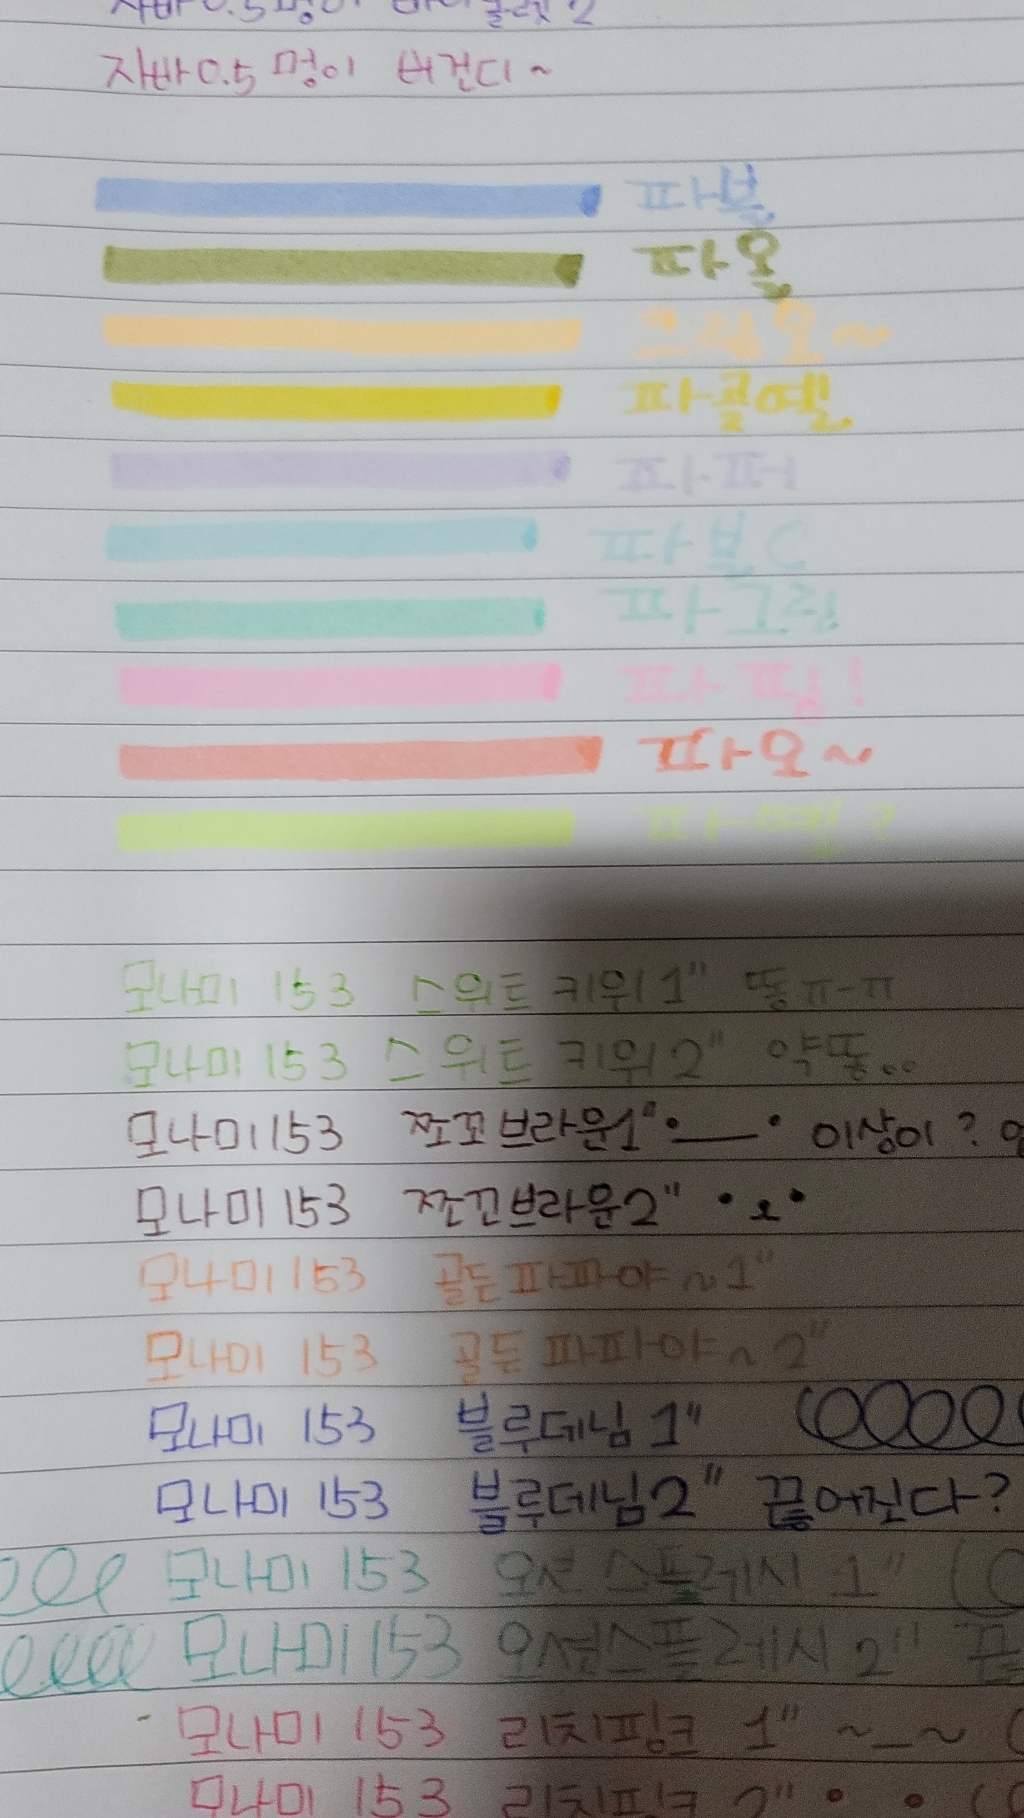 자바0.5 멍이 바이올렛 2
자바0.5 멍이 버건디~
파블
파올
크림오~
파골옐
파퍼
파블C
파그린
파핑!
파오~
파옐?
모나미 153 스위트 키위1" 똥ㅠ-ㅠ
모나미 153 스위트 키위2" 약똥..
모나미153 쪼꼬브라운1" •—• 이상이?
모나미 153 쪼꼬브라운2" •ㅗ•
모나미153 골든파파야~1"
모나미 153 골든파파야~2"
모나미 153 블루데님1"
모나미 153 블루데님2" 끊어진다?
모나미 153 오션스플레시 1"
모나미153 오션스플레시2"
모나미 153 리치핑크 1" ~_~
모나미 153 리치핑크 2"